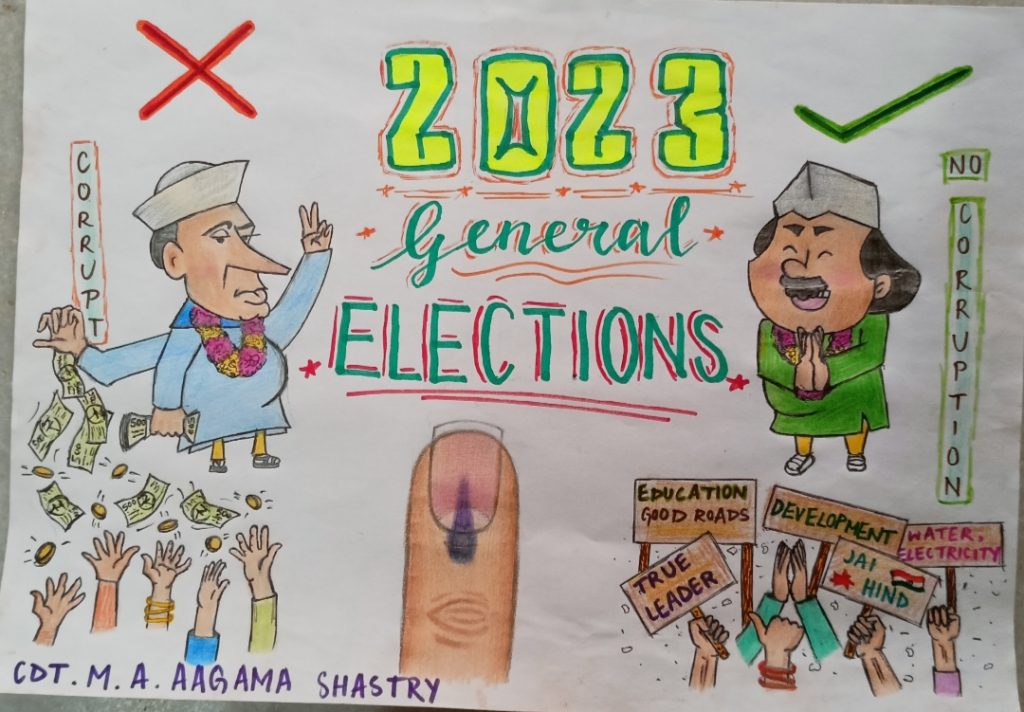 2023
General
ELECTIONS
CORRUPT
NO
CORRUPTION
500
500
500
EDUCATION
GOOD ROADS
DEVELOPMENT
WATER,
ELECTRICITY
TRUE
LEADER
JAI
HIND
CDT. M. A. AAGAMA SHASTRY